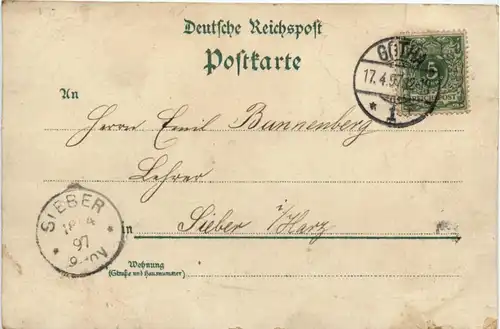 Deutsche Reichspost
Postkarte
GOTHA
17.4.97
1
5
An
Herrn Emil Bunnenberg
Lehrer
in Sieber i/Harz
SIEBER
97
Wohnung
(Straße und Hausnummer)